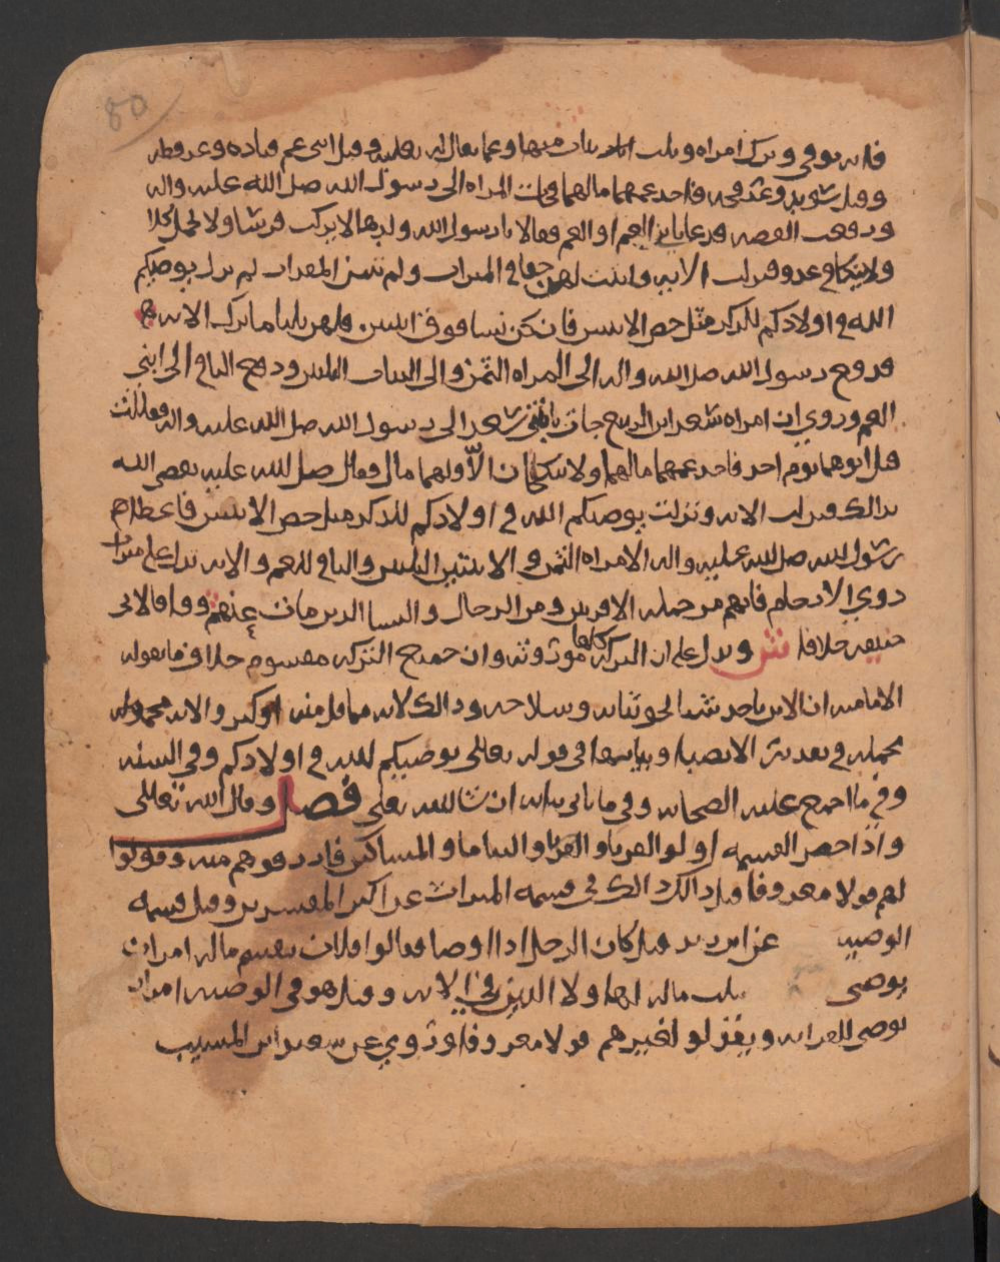 80
فانه توفي وترك امراه وثلث بنات منها وعما يقال له ثعلبه وقيل ابني عم قتاده وعرفطه
وقيل سويد وعرفجه فاخذ عمهما مالهما فجات المراه الى رسول الله صلى الله عليه واله
ورفعت القصه فدعا بابني العم او العم فقالا يا رسول الله ولدها لا يركب فرسا ولا يحمل كلا
ولا ينكا عدوا فنزلت الايه واثبت لهن حقا في الميراث ولم تبين المقدار ثم نزل يوصيكم
الله في اولادكم للذكر مثل حظ الانثيين فان كن نسا فوق اثنتين فلهن ثلثا ما ترك الايه
فدفع رسول الله صلى الله واله الى المراه الثمن والى البنات الثلثين ودفع الباقي الى ابني
العم وروي ان امراه سعد ابن الربيع جات بابنتي سعد الى رسول الله صلى الله عليه واله فقالت
قتل ابوهما يوم احد فاخذ عمهما مالهما ولا ينكحان الا ولهما مال فقال صلى الله عليه يقضي الله
بذالك فنزلت الايه ونزلت يوصيكم الله في اولادكم للذكر مثل حظ الانثيين فاعطاهم
رسول الله صلى الله عليه واله الامراه الثمن والابنتين الثلثين والباقي للعم والايه تدل على ميراث
ذوي الارحام فانهم من جمله الاقربين ومن الرجال والنسا الذين مات عنهم وفاقا لابي
حنيفه خلافا ش وتدل على ان التركه كلها موروثه وان جميع التركه مقسوم خلاف ما تقوله
الاماميه ان الابن ياخذ شد الحوثيابه وسلاحه وذالك لانه مما قل منه او كثر والايه محموله
مجمله في تعديد الانصبا وبيانها في قوله تعالى يوصيكم الله في اولادكم وفي السنه
وفي ما اجمع عليه الصحابه وفي ما ياتي بيانه ان شا الله تعلى فصل وقال الله تعالى
واذا حضر القسمه اولو القربا واليتاما والمساكين فارزقوهم منه وقولوا
لهم قولا معروفا قيل ذالك في قسمه الميراث عن اكثر المفسرين وقيل قسمه
الوصيه عن ابن زيد قيل كان الرجل اذا اوصا فقالوا فلان يقسم ماله امر ان
يوصي بثلث ماله لها ولا الذين في الايه وقيل هو في الوصيه امر ان
يوصي للقرابه ويقولوا لغيرهم قولا معروفا وروي عن سعيد ابن المسيب